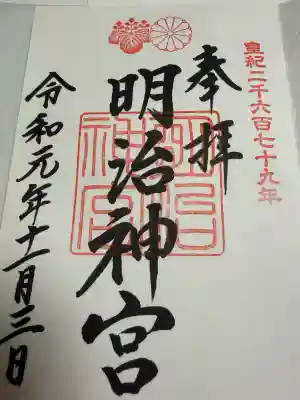 皇紀二千六百七十九年
奉拝
明治神宮
明治
神宮
令和元年十一月三日